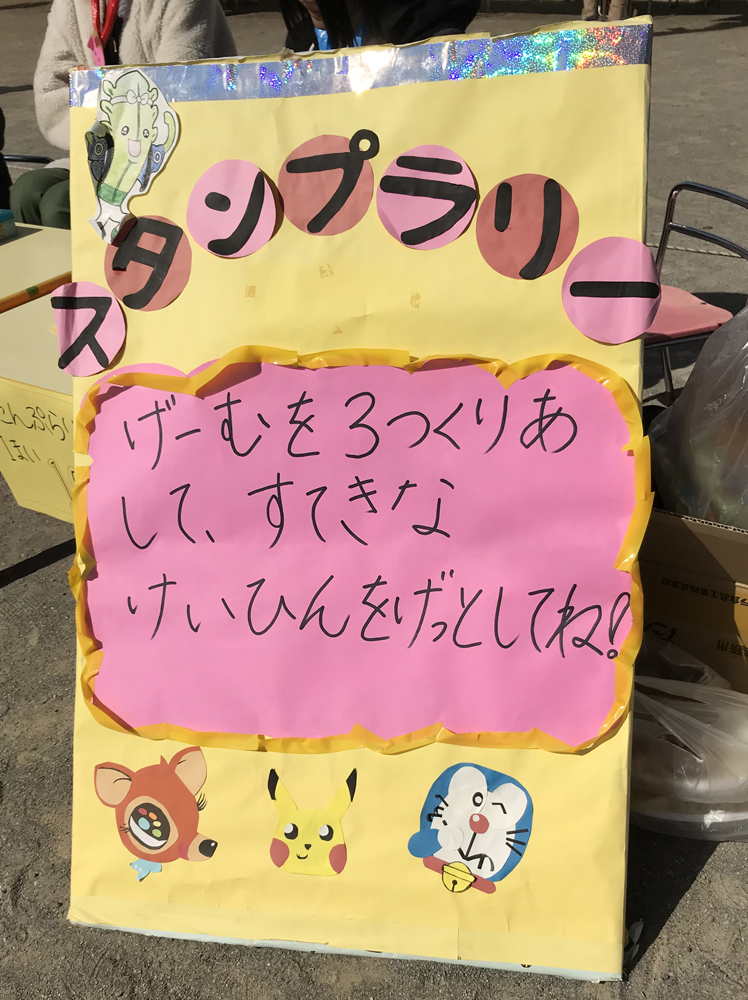 スタンプラリー
げーむを3つくりあ
して、すてきな
けいひんをげっとしてね!